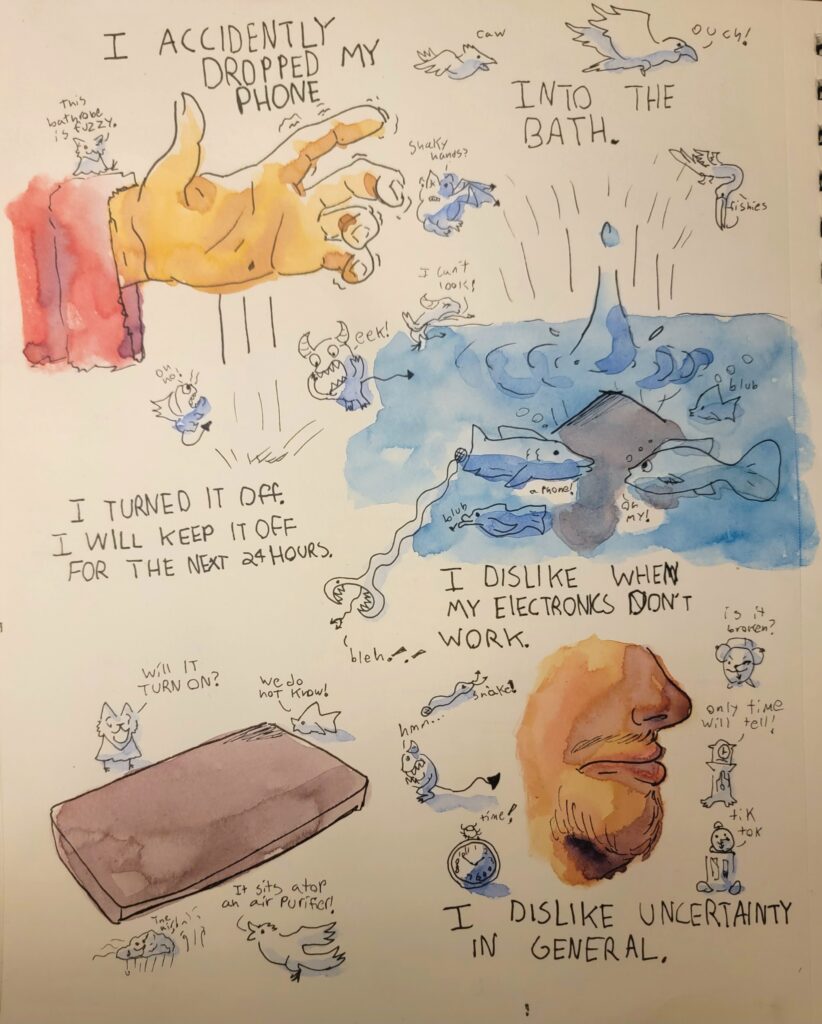 I ACCIDENTLY
DROPPED MY
PHONE
this
bathrobe
is fuzzy.
caw
ouch!
INTO THE
BATH.
Shaky
hands?
fishies
I can't
look!
eek!
oh
no!
blub
a phone!
oh
my!
blub
bleh!!
I TURNED IT OFF.
I WILL KEEP IT OFF
FOR THE NEXT 24 HOURS.
I DISLIKE WHEN
MY ELECTRONICS DON'T
WORK.
Will IT
TURN ON?
we do
not know!
It sits atop
an air purifier!
The
air
snake!
hmn...
time!
is it
broken?
only time
will tell!
tik
tok
I DISLIKE UNCERTAINTY
IN GENERAL.